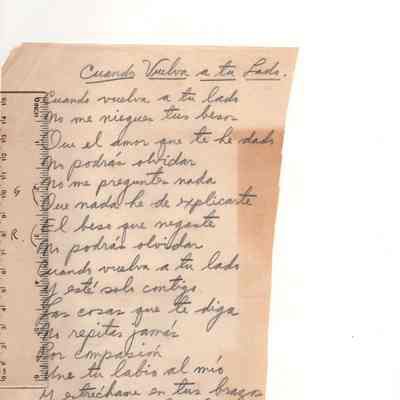 Cuando Vuelva a tu Lado.
Cuando vuelva a tu lado
No me niegues tus besos
Que el amor que te he dado
No podrás olvidar
No me preguntes nada
Que nada he de explicarte
El beso que negaste
No podrás olvidar
Cuando vuelva a tu lado
Y esté solo contigo
Las cosas que te diga
No repitas jamás
Por compasión
Une tu labio al mío
Y estréchame en tus brazos
G
R.